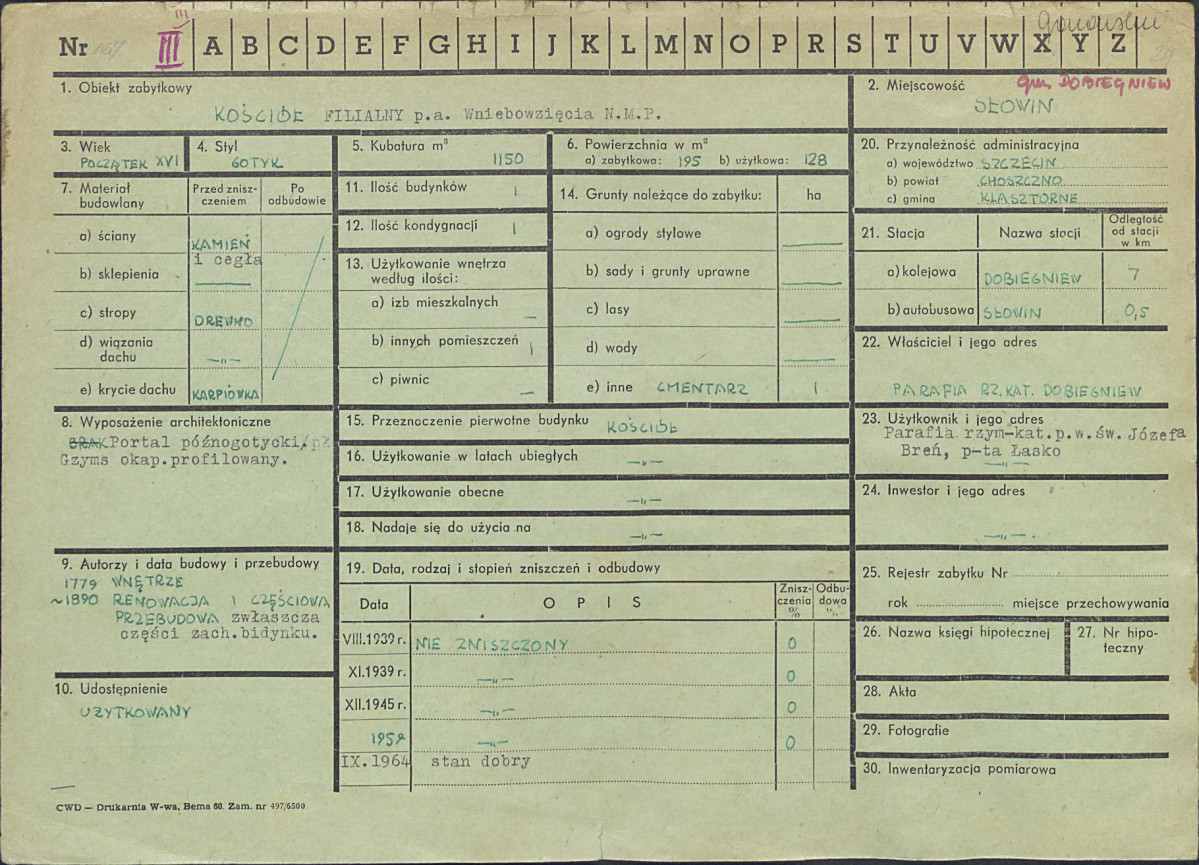 III
Nr 167 III A B C D E F G H I J K L M N O P R S T U V W X Y Z
1. Obiekt zabytkowy
KOŚCIÓŁ FILIALNY p.a. Wniebowzięcia N.M.P.
2. Miejscowość gm. DOBIEGNIEW
SŁOWIN
3. Wiek
POCZĄTEK XVI
4. Styl
GOTYK
5. Kubatura m³
1150
6. Powierzchnia w m²
a) zabytkowa: 195 b) użytkowa: 128
20. Przynależność administracyjna
a) województwo SZCZECIN
b) powiat CHOSZCZNO
c) gmina KLASZTORNE
7. Materiał budowlany
Przed zniszczeniem
Po odbudowie
a) ściany KAMIEŃ
i cegła
b) sklepienia —
c) stropy DREWNO
d) wiązania dachu —„—
e) krycie dachu KARPIÓWKA
11. Ilość budynków 1
12. Ilość kondygnacji 1
13. Użytkowanie wnętrza według ilości:
a) izb mieszkalnych —
b) innych pomieszczeń 1
c) piwnic —
14. Grunty należące do zabytku: ha
a) ogrody stylowe —
b) sady i grunty uprawne —
c) lasy —
d) wody —
e) inne CMENTARZ 1
21. Stacja
Nazwa stacji
Odległość od stacji w km
a) kolejowa DOBIEGNIEW 7
b) autobusowa SŁOWIN 0,5
22. Właściciel i jego adres
PARAFIA RZ. KAT. DOBIEGNIEW
8. Wyposażenie architektoniczne
BRAK Portal późnogotycki/
Gzyms okap.profilowany.
15. Przeznaczenie pierwotne budynku KOŚCIÓŁ
16. Użytkowanie w latach ubiegłych —„—
17. Użytkowanie obecne —„—
18. Nadaje się do użycia na —„—
23. Użytkownik i jego adres
Parafia rzym-kat.p.w.św. Józefa
Breń, p-ta Łasko
—„—
24. Inwestor i jego adres
—„—
9. Autorzy i data budowy i przebudowy
1779 WNĘTRZE
~1890 RENOWACJA I CZĘŚCIOWA
PRZEBUDOWA zwłaszcza
części zach.bidynku.
19. Data, rodzaj i stopień zniszczeń i odbudowy
Data
OPIS
Zniszczenia %
Odbudowa %
VIII.1939 r. NIE ZNISZCZONY 0
XI.1939 r. —„— 0
XII.1945 r. —„— 0
1959 —„— 0
IX.1964 stan dobry
25. Rejestr zabytku Nr
rok miejsce przechowywania
26. Nazwa księgi hipotecznej
27. Nr hipoteczny
10. Udostępnienie
UŻYTKOWANY
28. Akta
29. Fotografie
30. Inwentaryzacja pomiarowa
CWD — Drukarnia W-wa, Bema 60. Zam. nr 497/6500